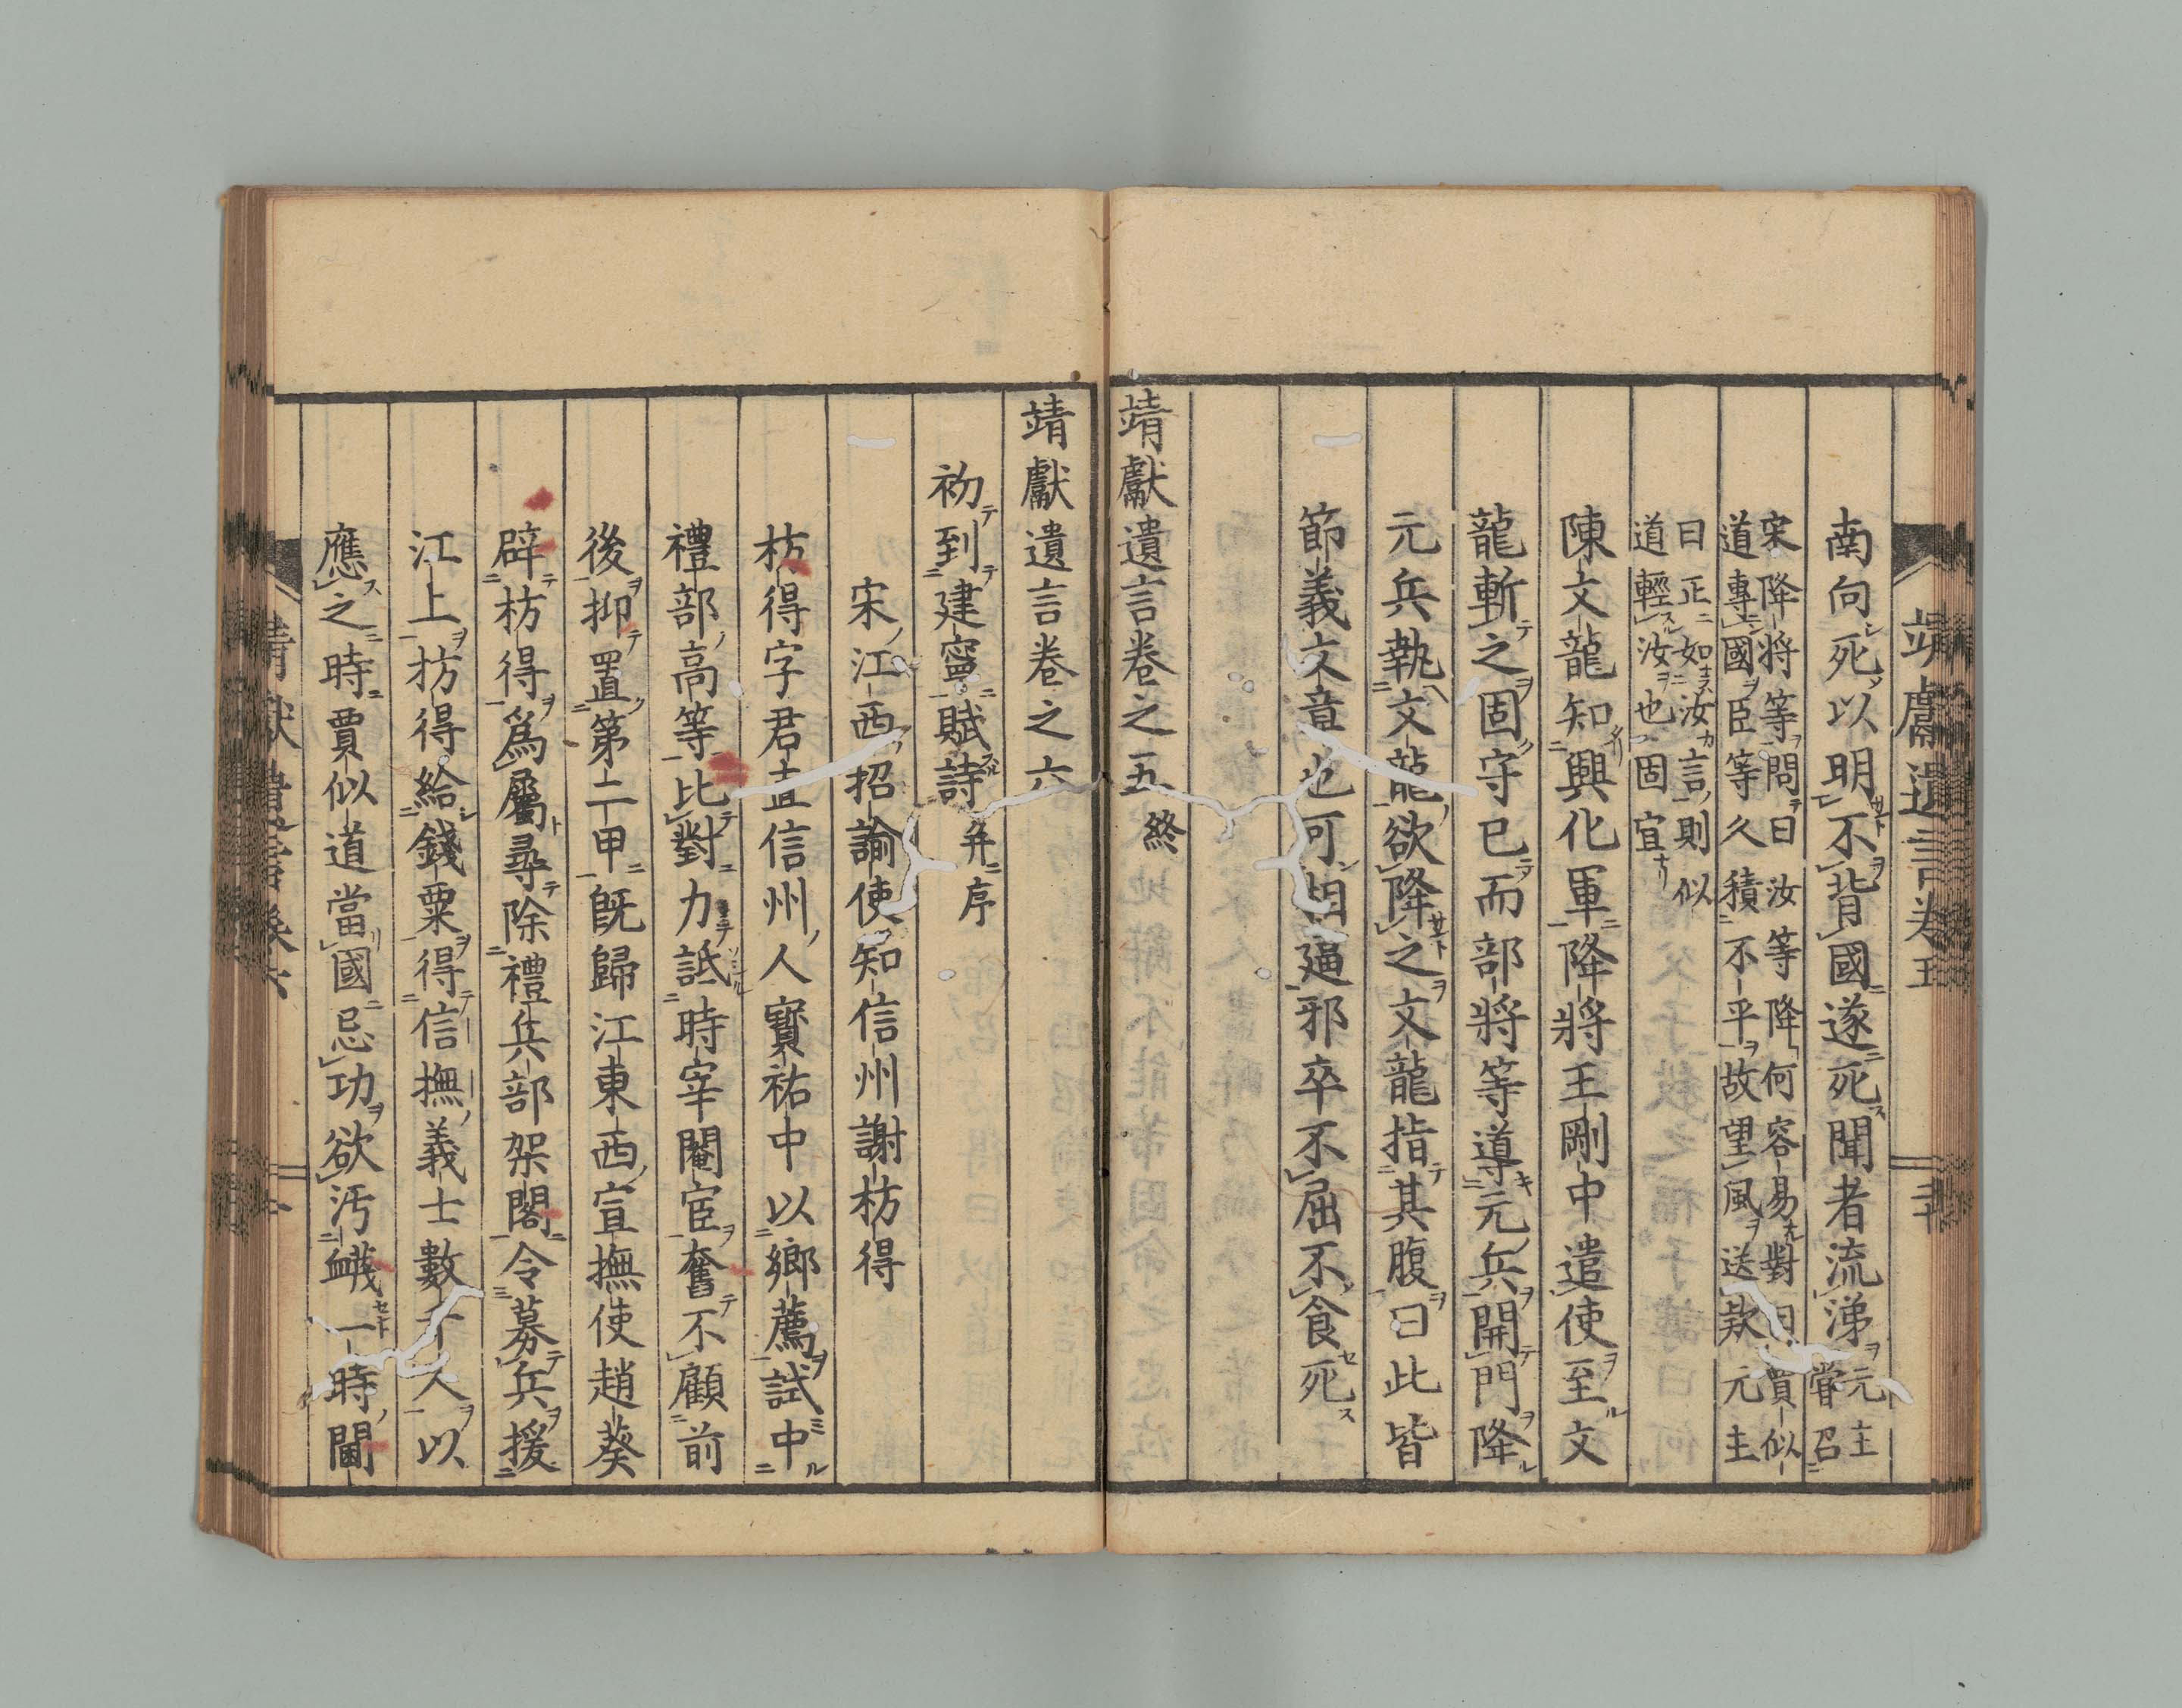 靖獻遺言卷五
南向死以明不背國遂死聞者流涕元主嘗召
宋降將等問曰汝等降何容易對曰賈似
道專國臣等久積不平故望風送款元主
曰正如汝言則似
道輕汝也固宜
陳文龍知興化軍降將王剛中遣使至文
龍斬之固守已而部將等導元兵開門降
元兵執文龍欲降之文龍指其腹曰此皆
節義文章也可相逼邪卒不屈不食死
靖獻遺言卷之五 終
靖獻遺言卷之六
初到建寧賦詩 并序
宋江西招諭使知信州謝枋得
枋得字君直信州人寶祐中以鄉薦試中
禮部高等比對力詆時宰閹宦奮不顧前
後抑置第二甲既歸江東西宣撫使趙葵
辟枋得爲屬尋除禮兵部架閣令募兵援
江上枋得給錢粟得信撫義士數千人以
應之時賈似道當國忌功欲汚衊一時閫
靖獻遺言卷六